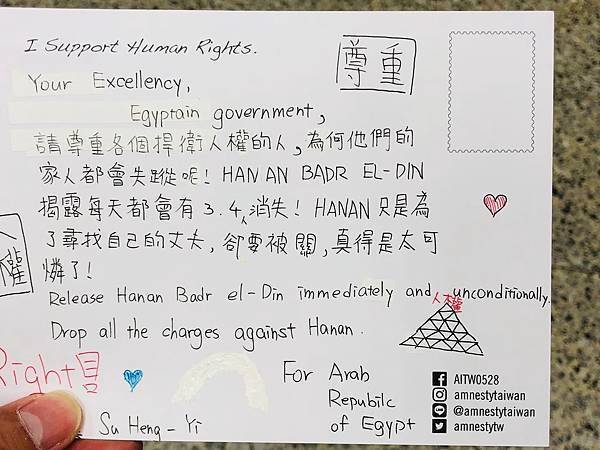 I Support Human Rights.
尊重
Your Excellency,
Egyptain government,
請尊重各個捍衛人權的人,為何他們的
家人都會失蹤呢! HANAN BADR EL-DIN
揭露每天都會有3.4人消失! HANAN只是為
了尋找自己的丈夫,卻要被關,真得是太可
憐了!
權
Release Hanan Badr el-Din immediately and unconditionally.
人權
Drop all the charges against Hanan.
Right
For Arab
Repubilc
of Egypt
Su Heng-Yi
AITW0528
@amnestytaiwan
@amnestytaiwan
amnestytw